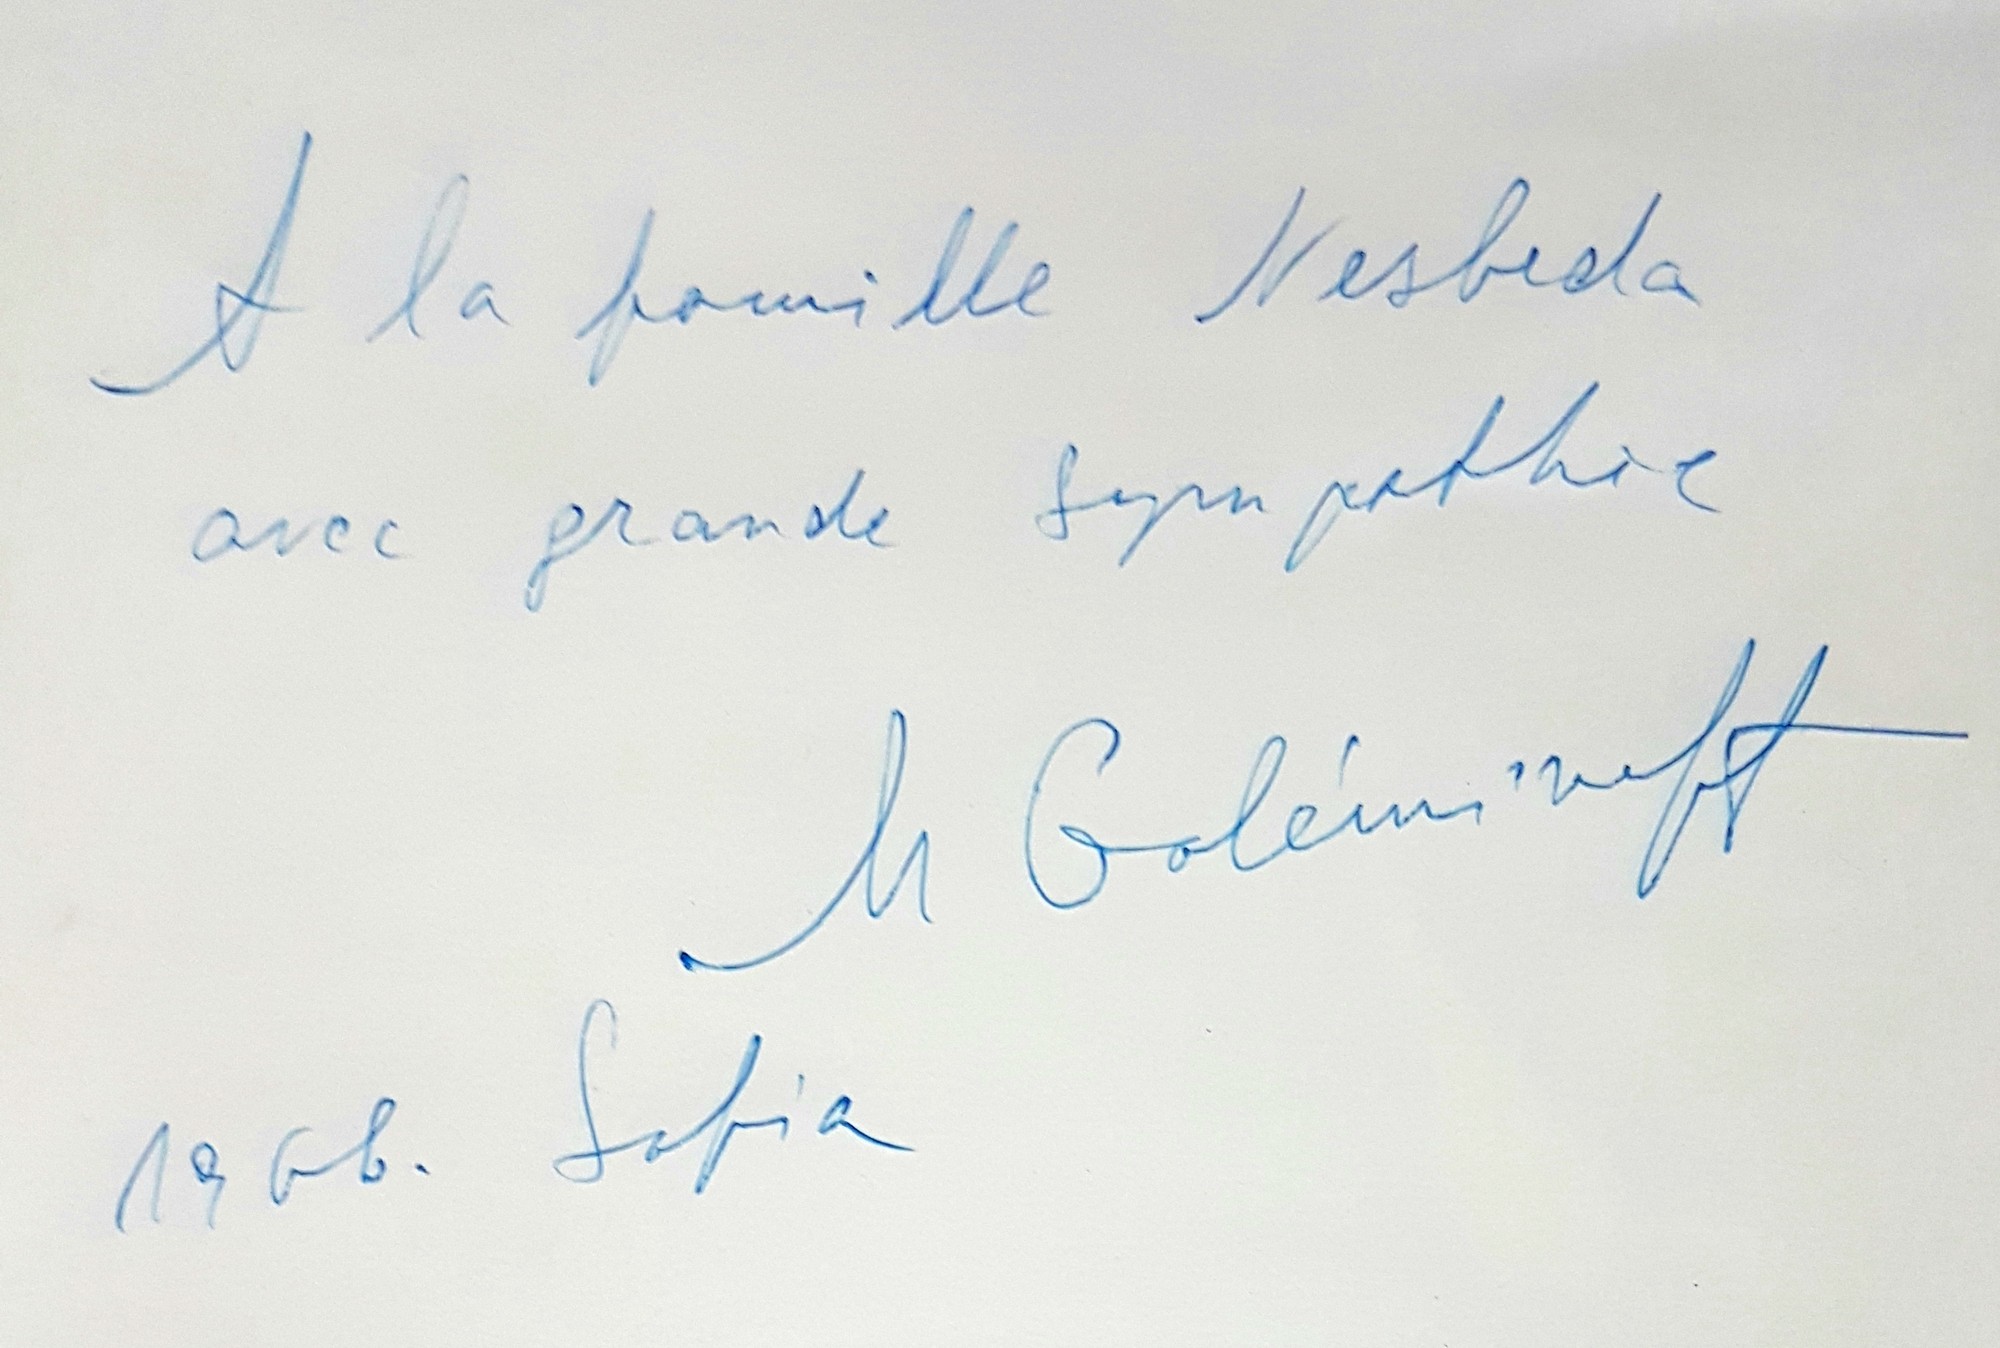 A la famille Nesbeda
avec grande sympathie
M Goléminoff
1966. Sofia